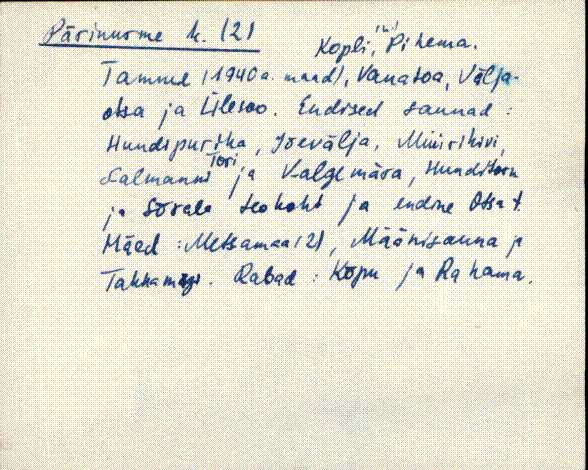 Pärinurme k. (2)
Kopli, Pihema.
Tamme (1940 a. maad), Vanatoa, Välja-
otsa ja Ülesoo. Endised saunad :
Hundipurika, Jõevälja, Müürikivi,
Salmanni Tori ja Valgemära, Hunditoru
ja Sõrale seokoht ja endine Otsa t.
Mäed : Metsamaa (2), Määnisauna j
Takkamägi. Rabad : Kõpu ja Rahama.